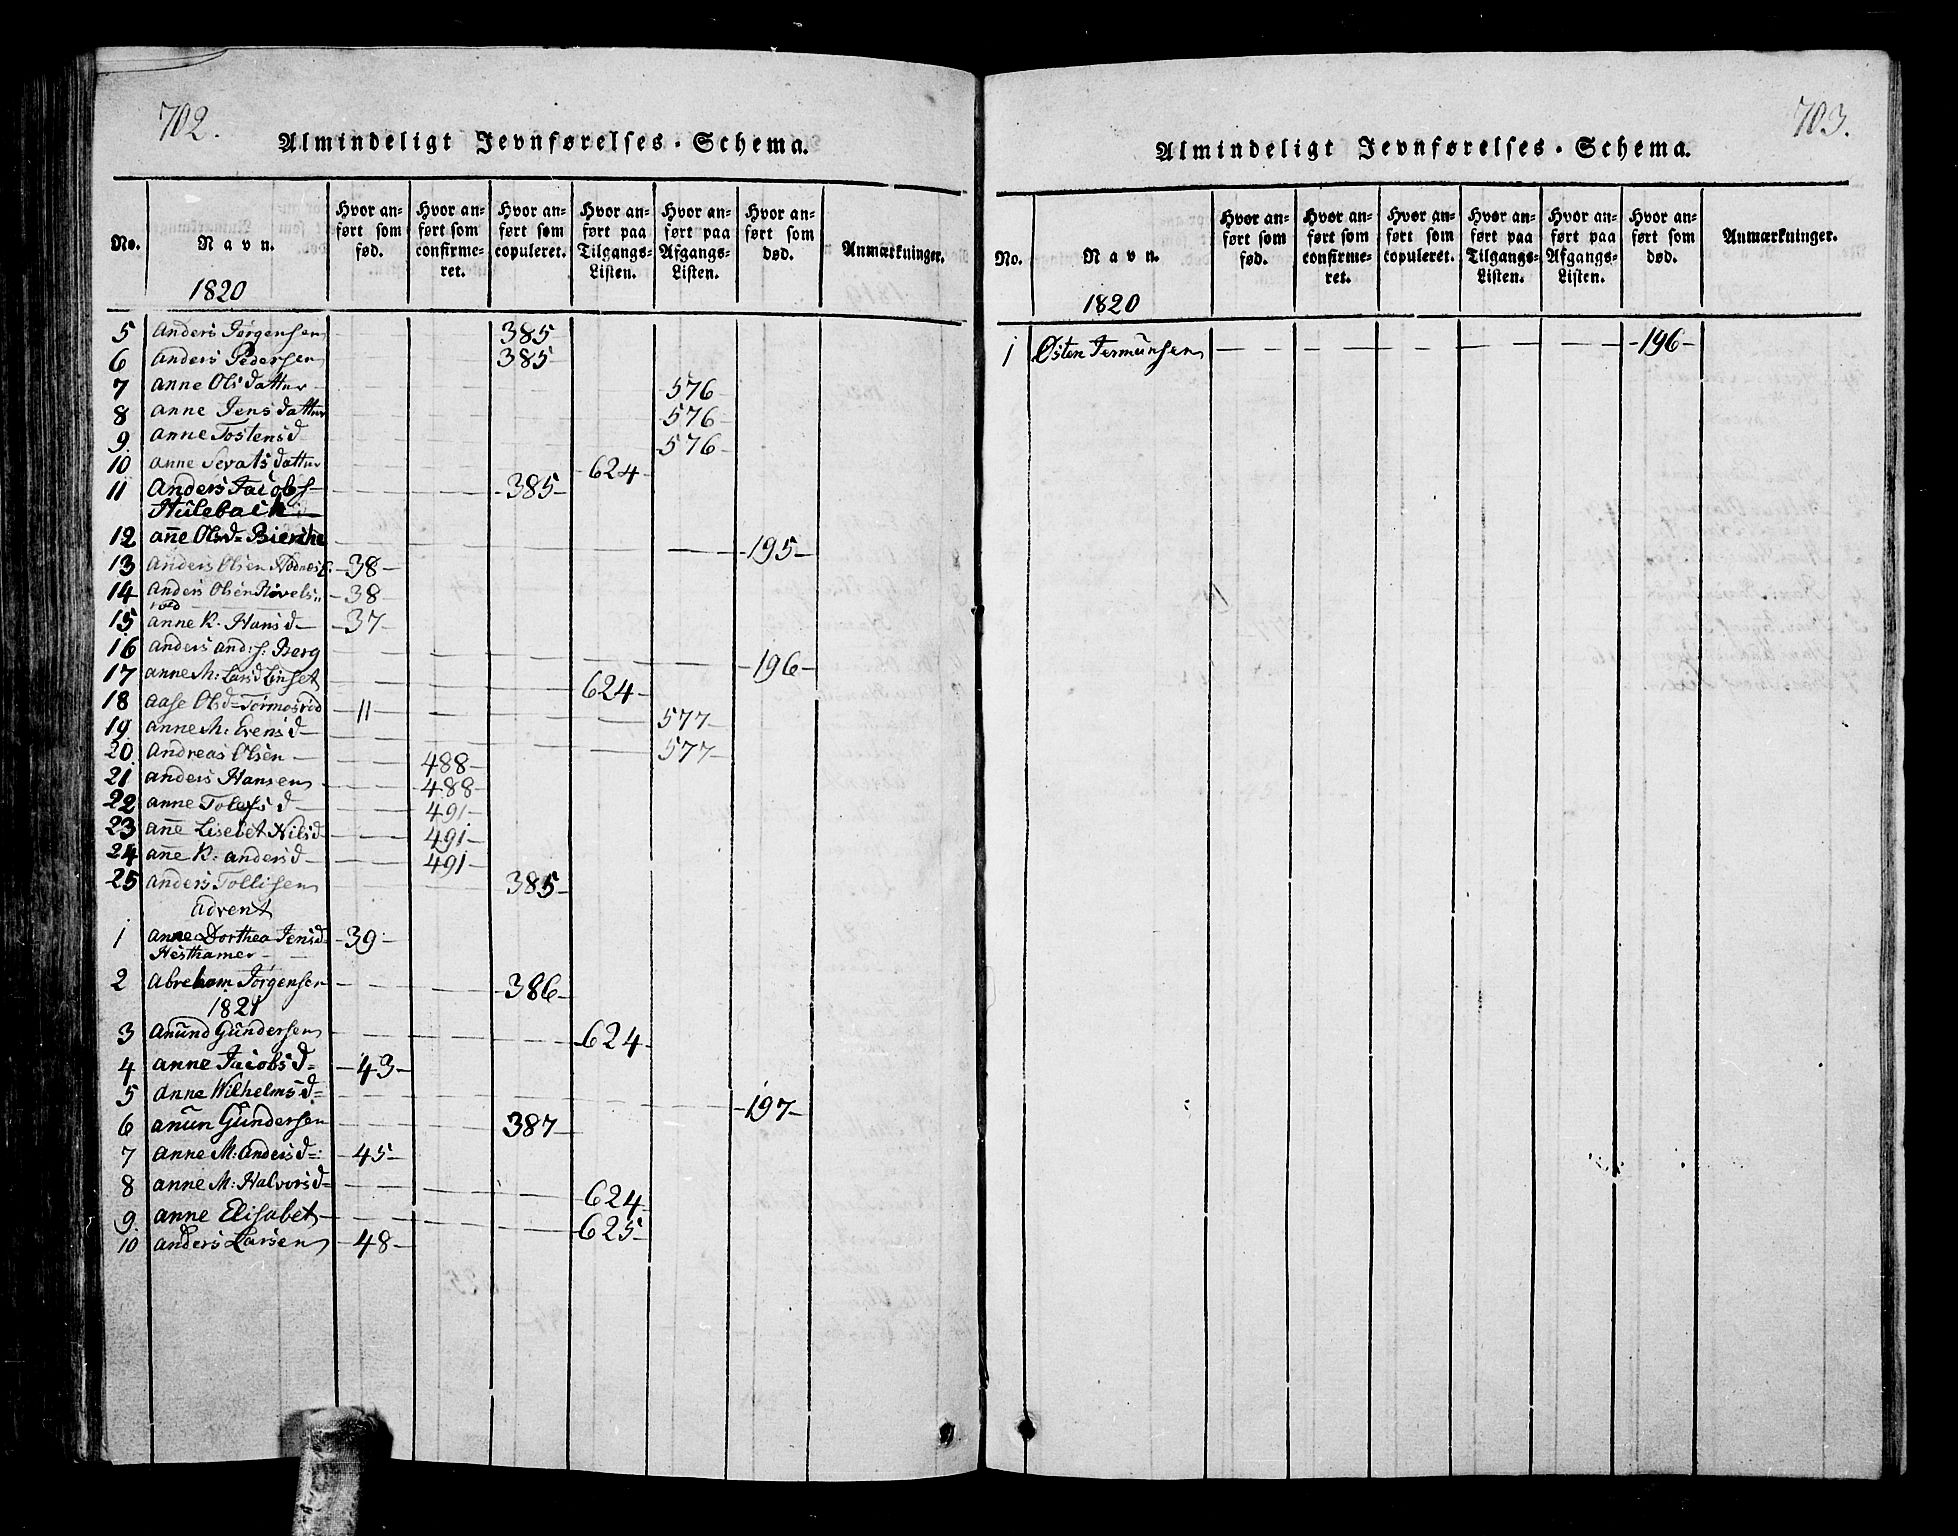 702.
Almindeligt Jevnførelses-Schema.
No. Navn. Hvor anført som fød. Hvor anført som confirmeret. Hvor anført som copuleret. Hvor anført paa Tilgangs-Listen. Hvor anført paa Afgangs-Listen. Hvor anført som død. Anmærkninger.
1820
5 Anders Jørgensen 385
6 Anders Pedersen 385
7 anne Olsdatter 576
8 anne Jensdatter 576
9. anne Tostensd 576
10 anne datter 624
11 Anders Jacobs 385
Hülebach
12 añe Olsd= Bierche 195
13 Anders Olsen 38
14 Anders Olsen 38
15 anne K. Hansd 37
16 anders and:s: Berg 196
17 anne M: Larsd Linset 624
18 aase Olsd= Tormosrød 11 577
19. anne M: Evensd 577
20. Andreas Olsen 488
21. anders Hansen 488
22 anne Tolefsd 491
23 añe Lisebet Nilsd 491
24 añe K: andersd 491
25 anders Tollisen 385
Advent
1 anne Dorthea Jensd 39
Hesthamer
2 Abreham Jørgensen 386
1821
3 Anünd Gündersen 624
4 anne Jacobsd= 43
5 Anne Wilhelmsd= 197
6 anün Gündersen 387
7 anne M: Andersd= 45
8 anne M: Halvorsd= 624
9. anne Elisabet 625
10 anders Larsen 48
703.
Almindeligt Jevnførelses-Schema.
No. Navn. Hvor anført som fød. Hvor anført som confirmeret. Hvor anført som copuleret. Hvor anført paa Tilgangs-Listen. Hvor anført paa Afgangs-Listen. Hvor anført som død. Anmærkninger.
1820
1 Østen Jermünsen 196